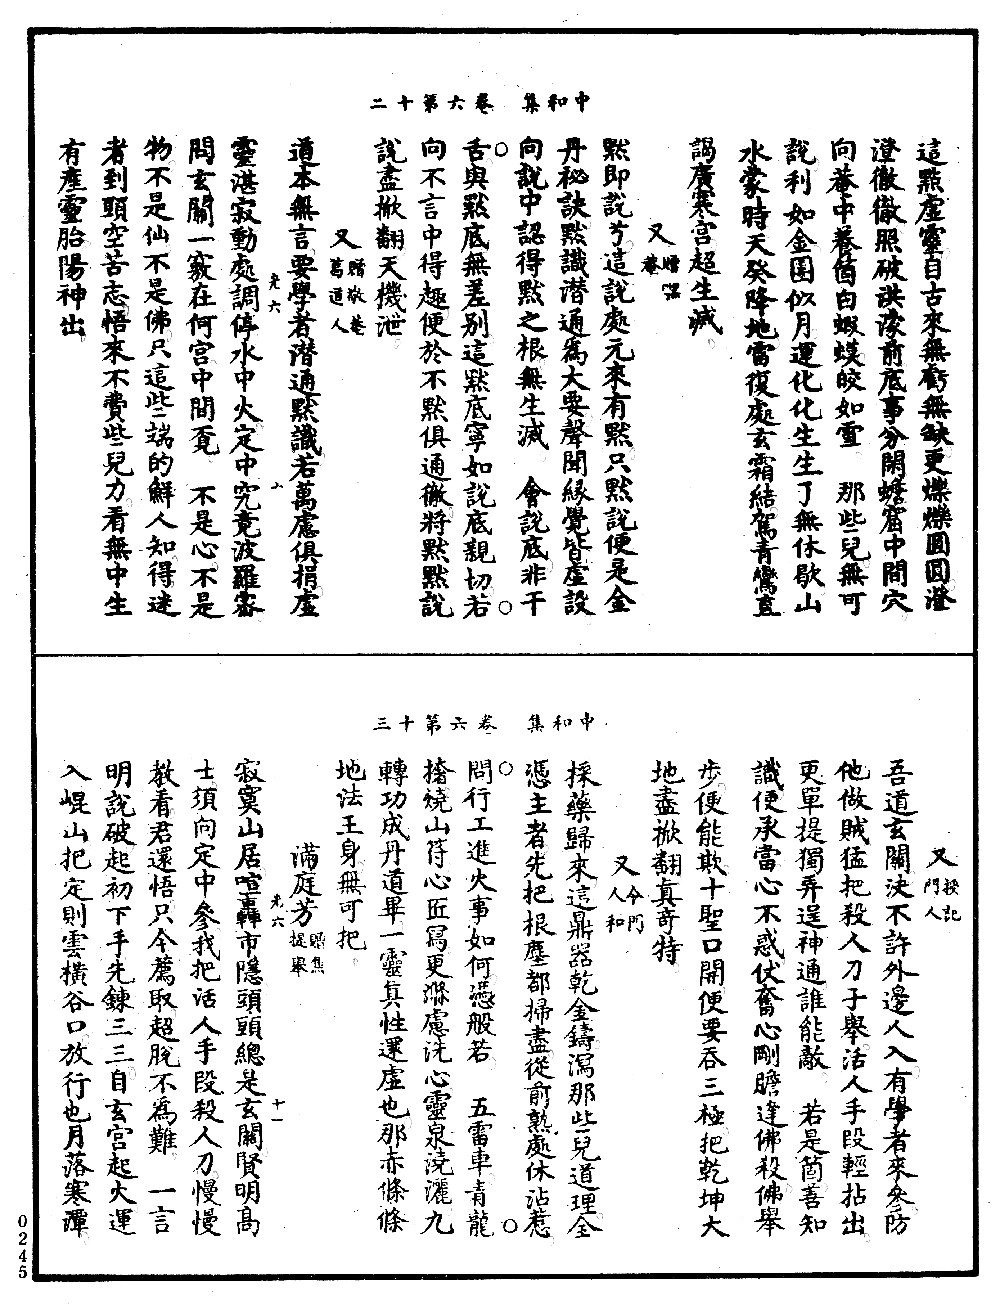 中和集　卷六第十二
這點虛靈自古來無虧無缺更爍爍圓圓澄
澄徹徹照破洪濛前底事分開蟾窟中間穴
向菴中養箇白蝦蟆皎如雪　那些兒無可
說利如金圓似月運化化生生了無休歇山
水蒙時天癸降地雷復處玄霜結駕青鸞直
謁廣寒宮超生滅
又贈嘿菴
默即說兮這說處元來有默只默說便是金
丹祕訣默識潛通為大要聲聞緣覺皆虛設
向說中認得默之根無生滅　會說底非干
舌與默底無差別這默底寧如說底親切若
向不言中得趣便於不默俱通徹將默默說
說盡掀翻天機泄
又贈敬菴葛道人
道本無言要學者潛通默識若萬慮俱捐虛
光六
靈湛寂動處調停水中火定中究竟波羅密
問玄關一竅在何宮中間覓　不是心不是
物不是仙不是佛只這些端的鮮人知得迷
者到頭空苦志悟來不費些兒力看無中生
有產靈胎陽神出
中和集　卷六第十三
又授記門人
吾道玄關決不許外邊人入有學者來參防
他做賊猛把殺人刀子舉活人手段輕拈出
更單提獨弄逞神通誰能敵　若是箇善知
識便承當心不惑仗奮心剛膽逢佛殺佛舉
步便能欺十聖口開便要吞三極把乾坤大
地盡掀翻真奇特
又令門人和
採藥歸來這鼎器乾金鑄瀉那些兒道理全
憑主者先把根塵都掃盡從前熟處休沾惹
問行工進火事如何憑般若　五雷車青龍
搶燒山符心匠寫更滌慮洗心靈泉澆灑九
轉功成丹道畢一靈真性還虛也那赤條條
地法王身無可把
滿庭芳贈焦提舉
光六
寂寞山居喧轟市隱頭頭總是玄關賢明高
十一
士須向定中參我把活人手段殺人刀慢慢
教看君還悟只今薦取超脫不為難　一言
明說破起初下手先鍊三三自玄宮起火運
入崐山把定則雲橫谷口放行也月落寒潭
0245